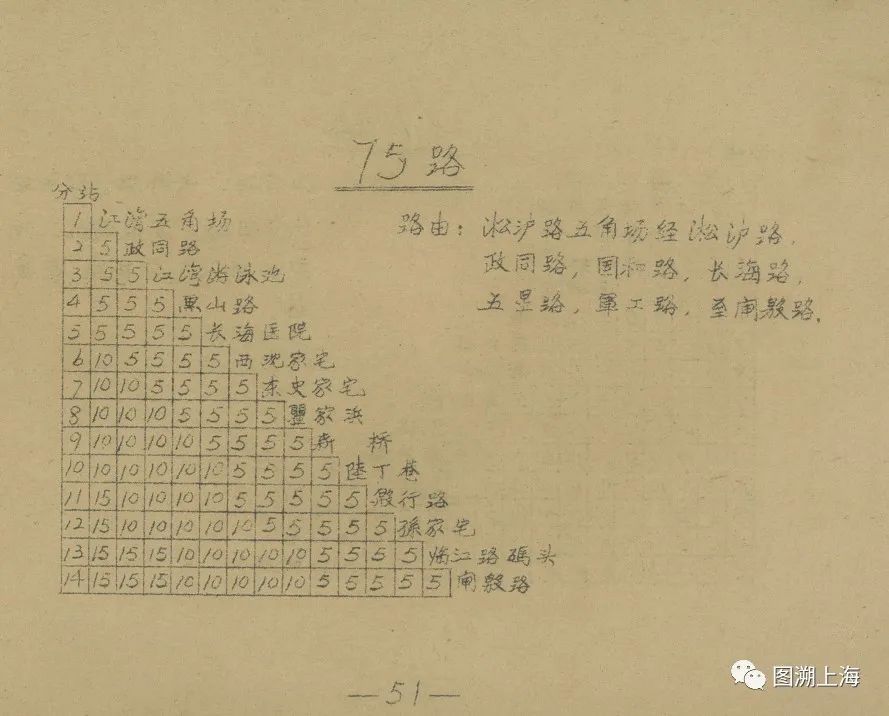 75路
分站
1 江湾五角场
2 5 政同路
3 5 5 江湾游泳池
4 5 5 5 黑山路
5 5 5 5 5 长海医院
6 10 5 5 5 5 西沈家宅
7 10 10 5 5 5 5 东史家宅
8 10 10 10 5 5 5 5 瞿家浜
9 10 10 10 10 5 5 5 5 新 桥
10 10 10 10 10 10 5 5 5 5 陸丁巷
11 15 10 10 10 10 5 5 5 5 5 殷行路
12 15 10 10 10 10 10 5 5 5 5 5 孫家宅
13 15 15 15 10 10 10 10 10 5 5 5 5 临江路碼头
14 15 15 15 10 10 10 10 10 5 5 5 5 5 闸殷路
路由：淞沪路五角场经淞沪路，
政同路，国和路，长海路，
五星路，軍工路，至闸殷路．
—51—
图溯上海